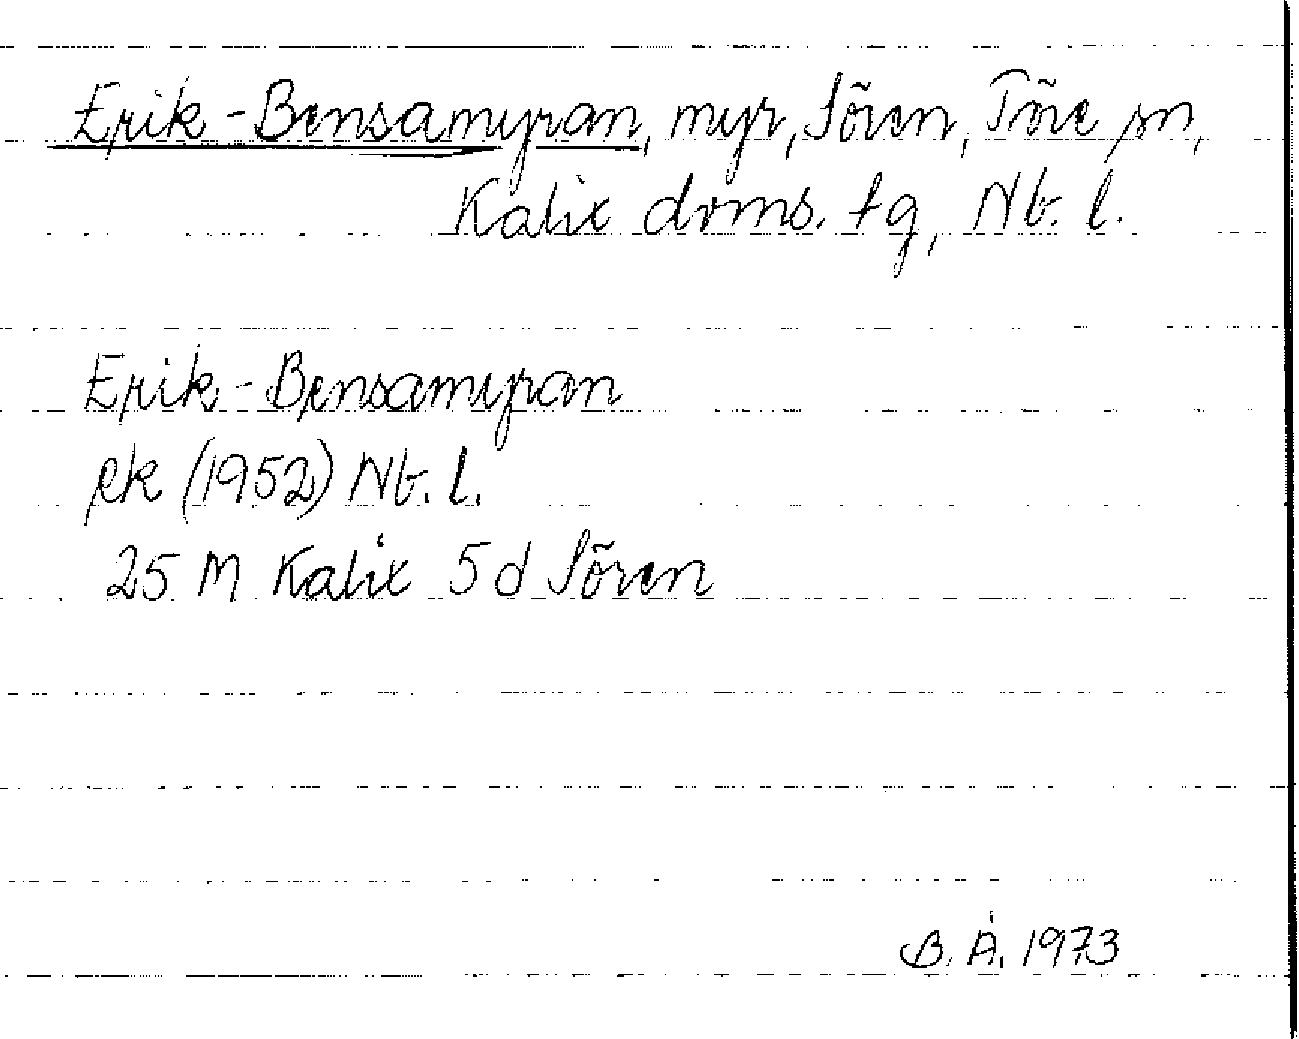 Erik-Bensamyran, myr, Sören, Töre sn,
Kalix doms. tg, Nb. l.
Erik-Bensamyran
ek (1952) Nb. l.
25 M Kalix 5 d Sören
B. Å. 1973